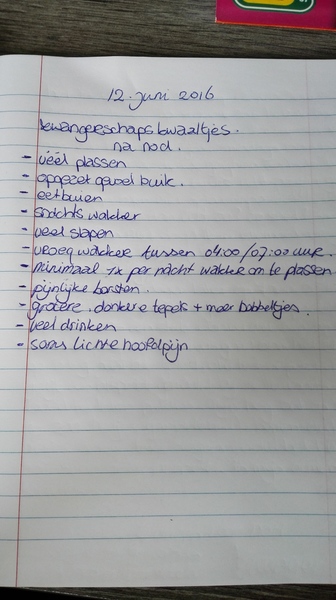 12 juni 2016
Zwangerschapskwaaltjes.
na nod.
- véél plassen
- opgezet gevoel buik.
- eetbuien
- snachts wakker
- veel slapen
- vroeg wakker tussen 04:00/07:00 uur.
- minimaal 1x per nacht wakker om te plassen
- pijnlijke borsten.
- grotere, donkere tepels + meer bobbeltjes.
- veel drinken
- soms lichte hoofdpijn